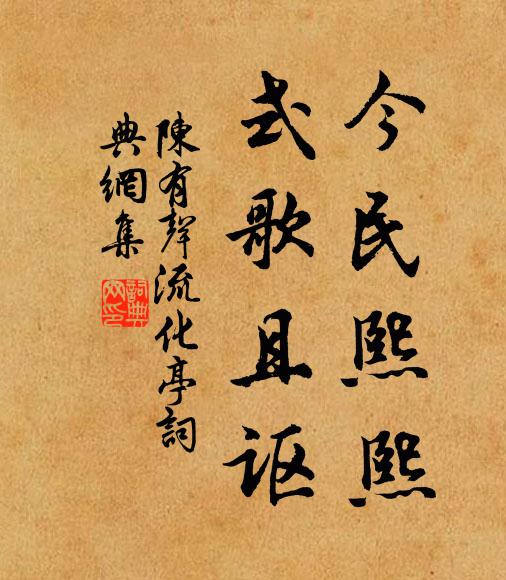 今民熙熙
式歌且讴
陳有聲流化亭詞
典網集
詞典
网印